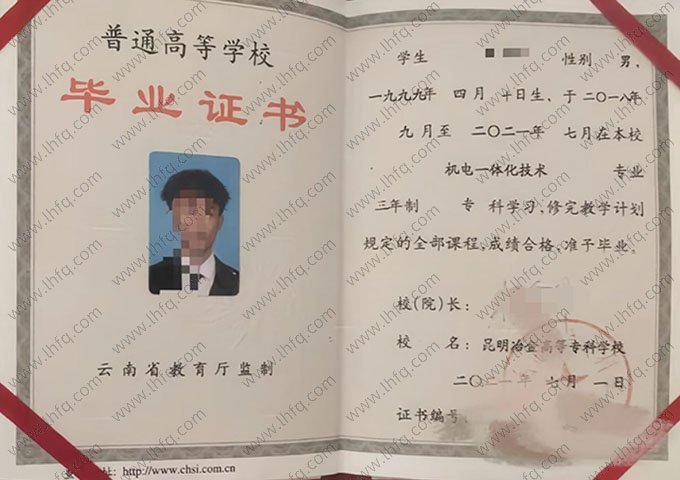 普通高等学校
毕业证书
云南省教育厅监制
网址: http://www.chsi.com.cn
学生 性别 男,
一九九九年 四月 十日生、于二〇一八年
九月至 二〇二一年 七月在本校
机电一体化技术 专业
三年制 专 科学习,修完教学计划
规定的全部课程,成绩合格,准予毕业。
校(院)长:
校 名: 昆明冶金高等专科学校
二〇二一年 七月 一日
证书编号:
www.lhfq.com